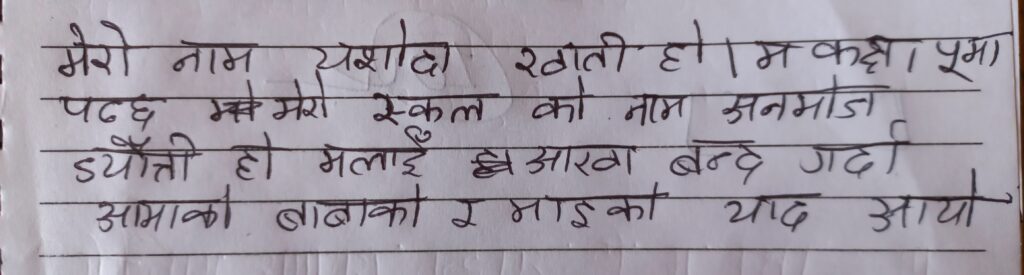 मेरो नाम यशोदा खाती हो। म कक्षा ५मा
पढ्छ मेरो स्कुल को नाम अनमोज
ड्यौत्ती हो मलाई आखा बन्द गर्दा
आमाको बाबाको र भाइको याद आयो